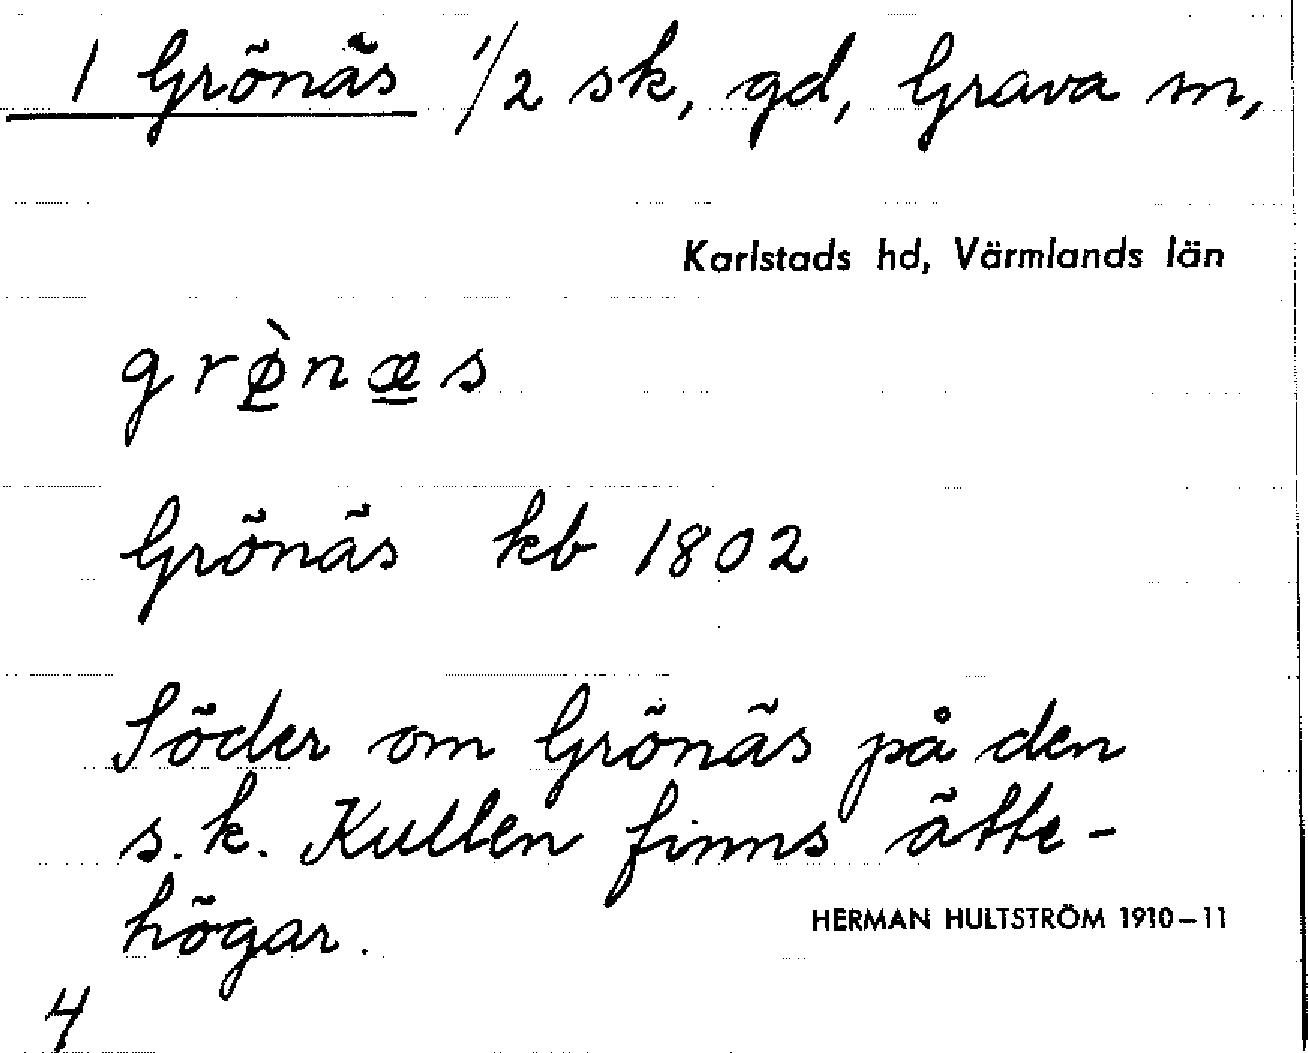 1 Grönäs 1/2 sk, gd, Grava sn,
Karlstads hd, Värmlands län
grø̀næs
Grönäs kb 1802
Söder om Grönäs på den
s.k. Kullen finns ätte-
högar.
HERMAN HULTSTRÖM 1910–11
4